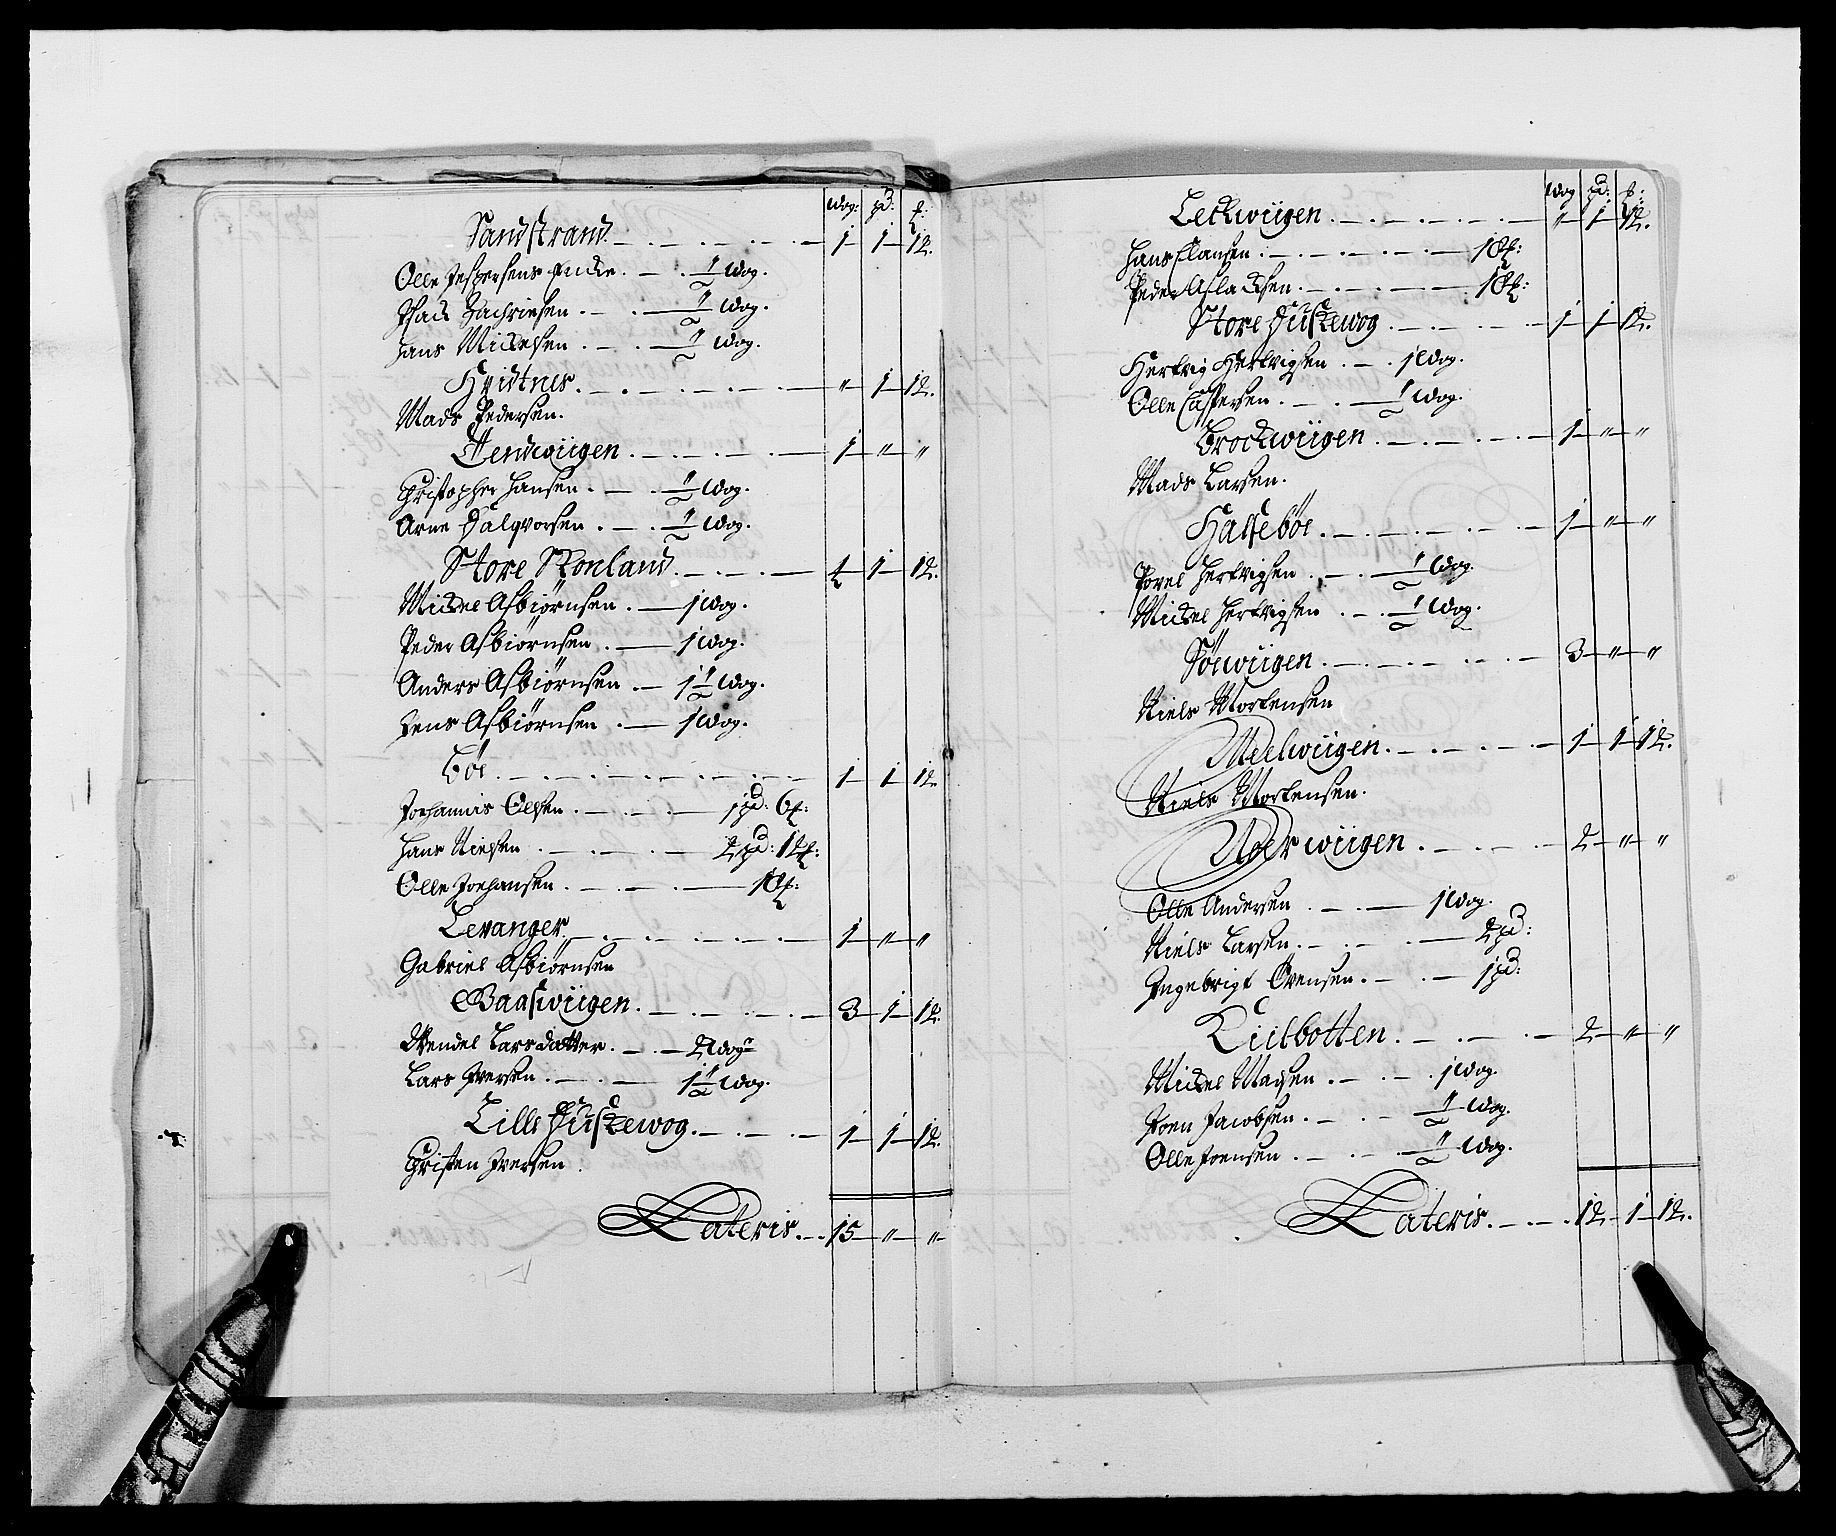 Wog: pd: ℔:
Sandstrand 1 1 12.
Olle Jespersens Encke. ½ Wog.
Isach Zachriesen. ½ Wog.
Hans Mickelsen. ½ Wog.
Hvidtnes. " 1 12.
Mads Pedersen.
Tendwiigen. 1 " "
Christopher Hansen. ½ Wog.
Arne Halqvorsen. ½ Wog.
Store Rönland. 4 1 12.
Mickel Asbiörnsen. 1 Wog.
Peder Asbiörnsen. 1 Wog.
Anders Asbiörnsen. 1½ Wog.
Jens Asbiörnsen. 1 Wog.
Böe. 1 1 12.
Johannis Olsen. 1 pd: 6 ℔:
Hans Nielsen. 2 pd: 12 ℔:
Olle Johansen. 18 ℔:
Levanger. 1 " "
Gabriel Asbiörnsen
Gaaswiigen. 3 1 12.
Wendel Larsdatter. 2 Wog
Lars Iversen. 1½ Wog.
Lille Hustewog. 1 1 12.
Christen Iversen.
Lateris. 15 " "
Wog pd: ℔:
Leckwiigen. " 1 12.
Hans Clausen. 18 ℔:
Peder Aslacksen. 18 ℔:
Store Hustewog. 1 1 12.
Hertvig Hertvigsen. 1 Wog.
Olle Caspersen. ½ Wog.
Brockwiigen. 1 " "
Mads Larsen.
Halseböe. 1 " "
Povel Hertvigsen. ½ Wog.
Mickel Hertvigsen. ½ Wog.
Söewiigen. 3 " "
Niels Mortensen
Meelwiigen. 1 1 12.
Niels Mortensen.
Aderwiigen. 2 " "
Olle Andersen. 1 Wog.
Niels Larsen. 2 pd:
Ingebrigt Evensen. 1 pd:
Kiilbotten. 2 " "
Mickel Madsen. 1 Wog.
Joen Jacobsen. ½ Wog.
Olle Joensen. ½ Wog.
Lateris. 12 1 12.